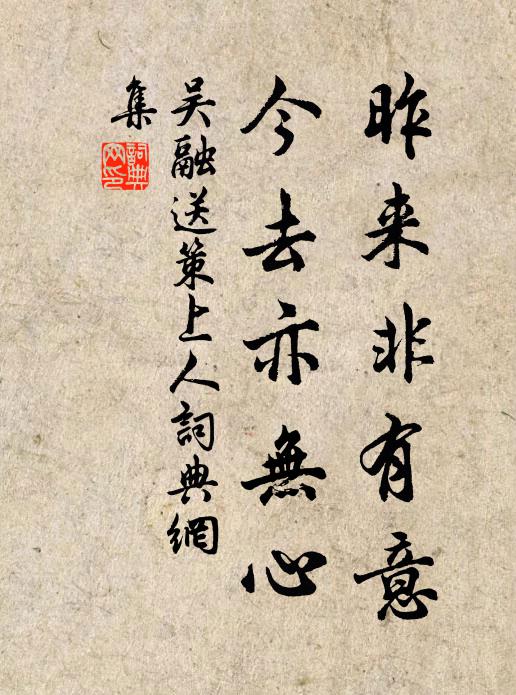 昨来非有意
今去亦無心
吴融送策上人詞典網
集
詞典
网印